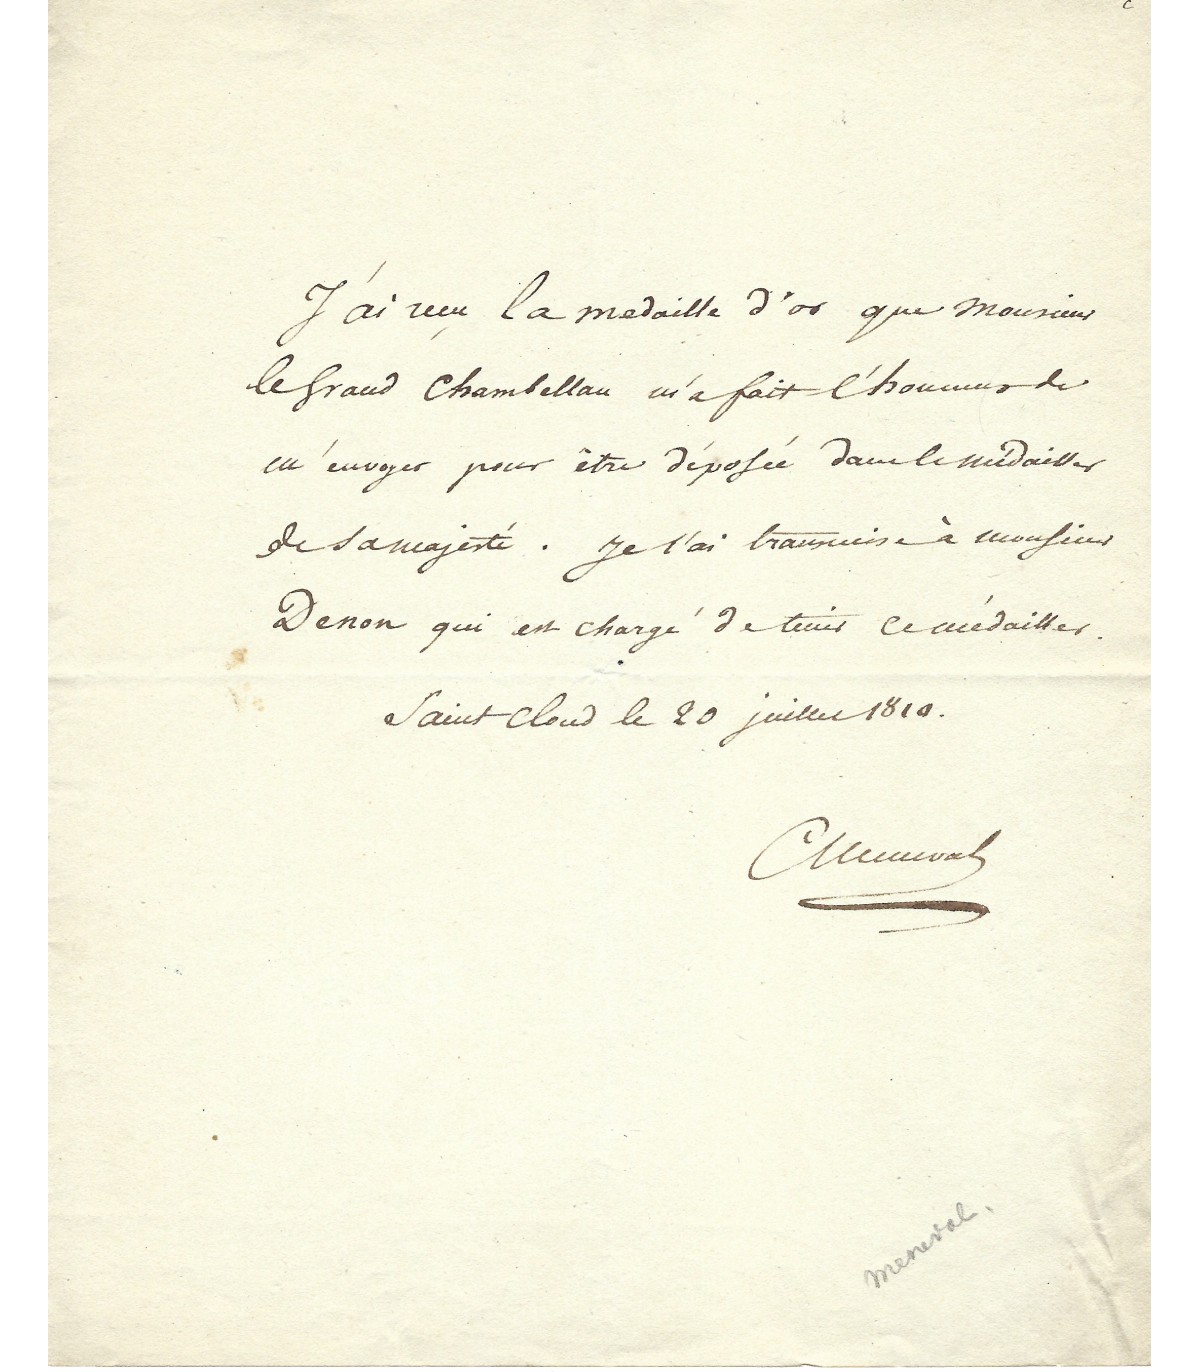 J'ai reçu la medaille d'or que Monsieur
le Grand Chambellan m'a fait l'honneur de
m'envoyer pour être déposée dans le médailler
de sa majesté. Je l'ai transmise à monsieur
Denon qui est chargé de tenir ce médailler.
Saint Cloud le 20 juillet 1810.
Meneval
meneval.